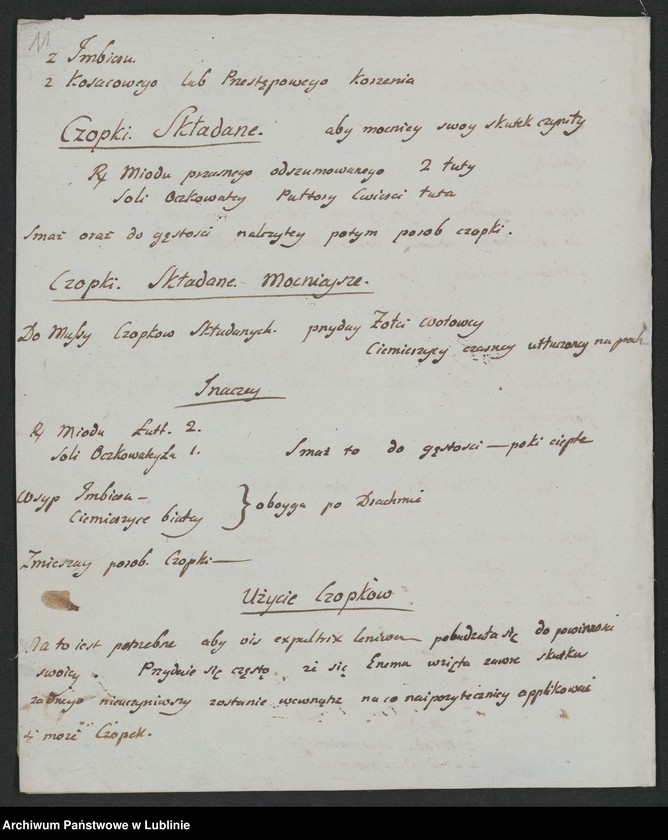 11
z Imbieru.
z Kosacowego lub Przestępowego Korzenia
Czopki. Składane. aby mocniey swoy skutek czyniły
℞ Miodu przasnego odszumowanego 2 łuty
Soli Oczkowatey Pułtory Cwierci łuta
Smaż oraz do gęstosci należytey potym porob czopki.
Czopki. Składane. Mocnieysze.
Do Massy Czopkow Składanych. przyday Zołci wołowey
Ciemierzycy czarney utłuczoney na proch
Inaczey
℞ Miodu Łutt. 2.
Soli Oczkowatey Łu 1. Smaż to do gęstosci — poki ciepłe
Wsyp Imbieru —
Ciemierzyce białey } oboyga po Drachmie
Zmieszay porob. Czopki —
Użycie Czopków
Na to iest potrzebne aby vis expultrix leniwa pobudzała się do powinnosci
swoiey. Przydaie się często, zi się Enema wzięta zawsze skutku
żadnego nieuczyniwszy zostanie wewnątrz na co naipozyteczniey applikować
się może Czopek.
Archiwum Państwowe w Lublinie